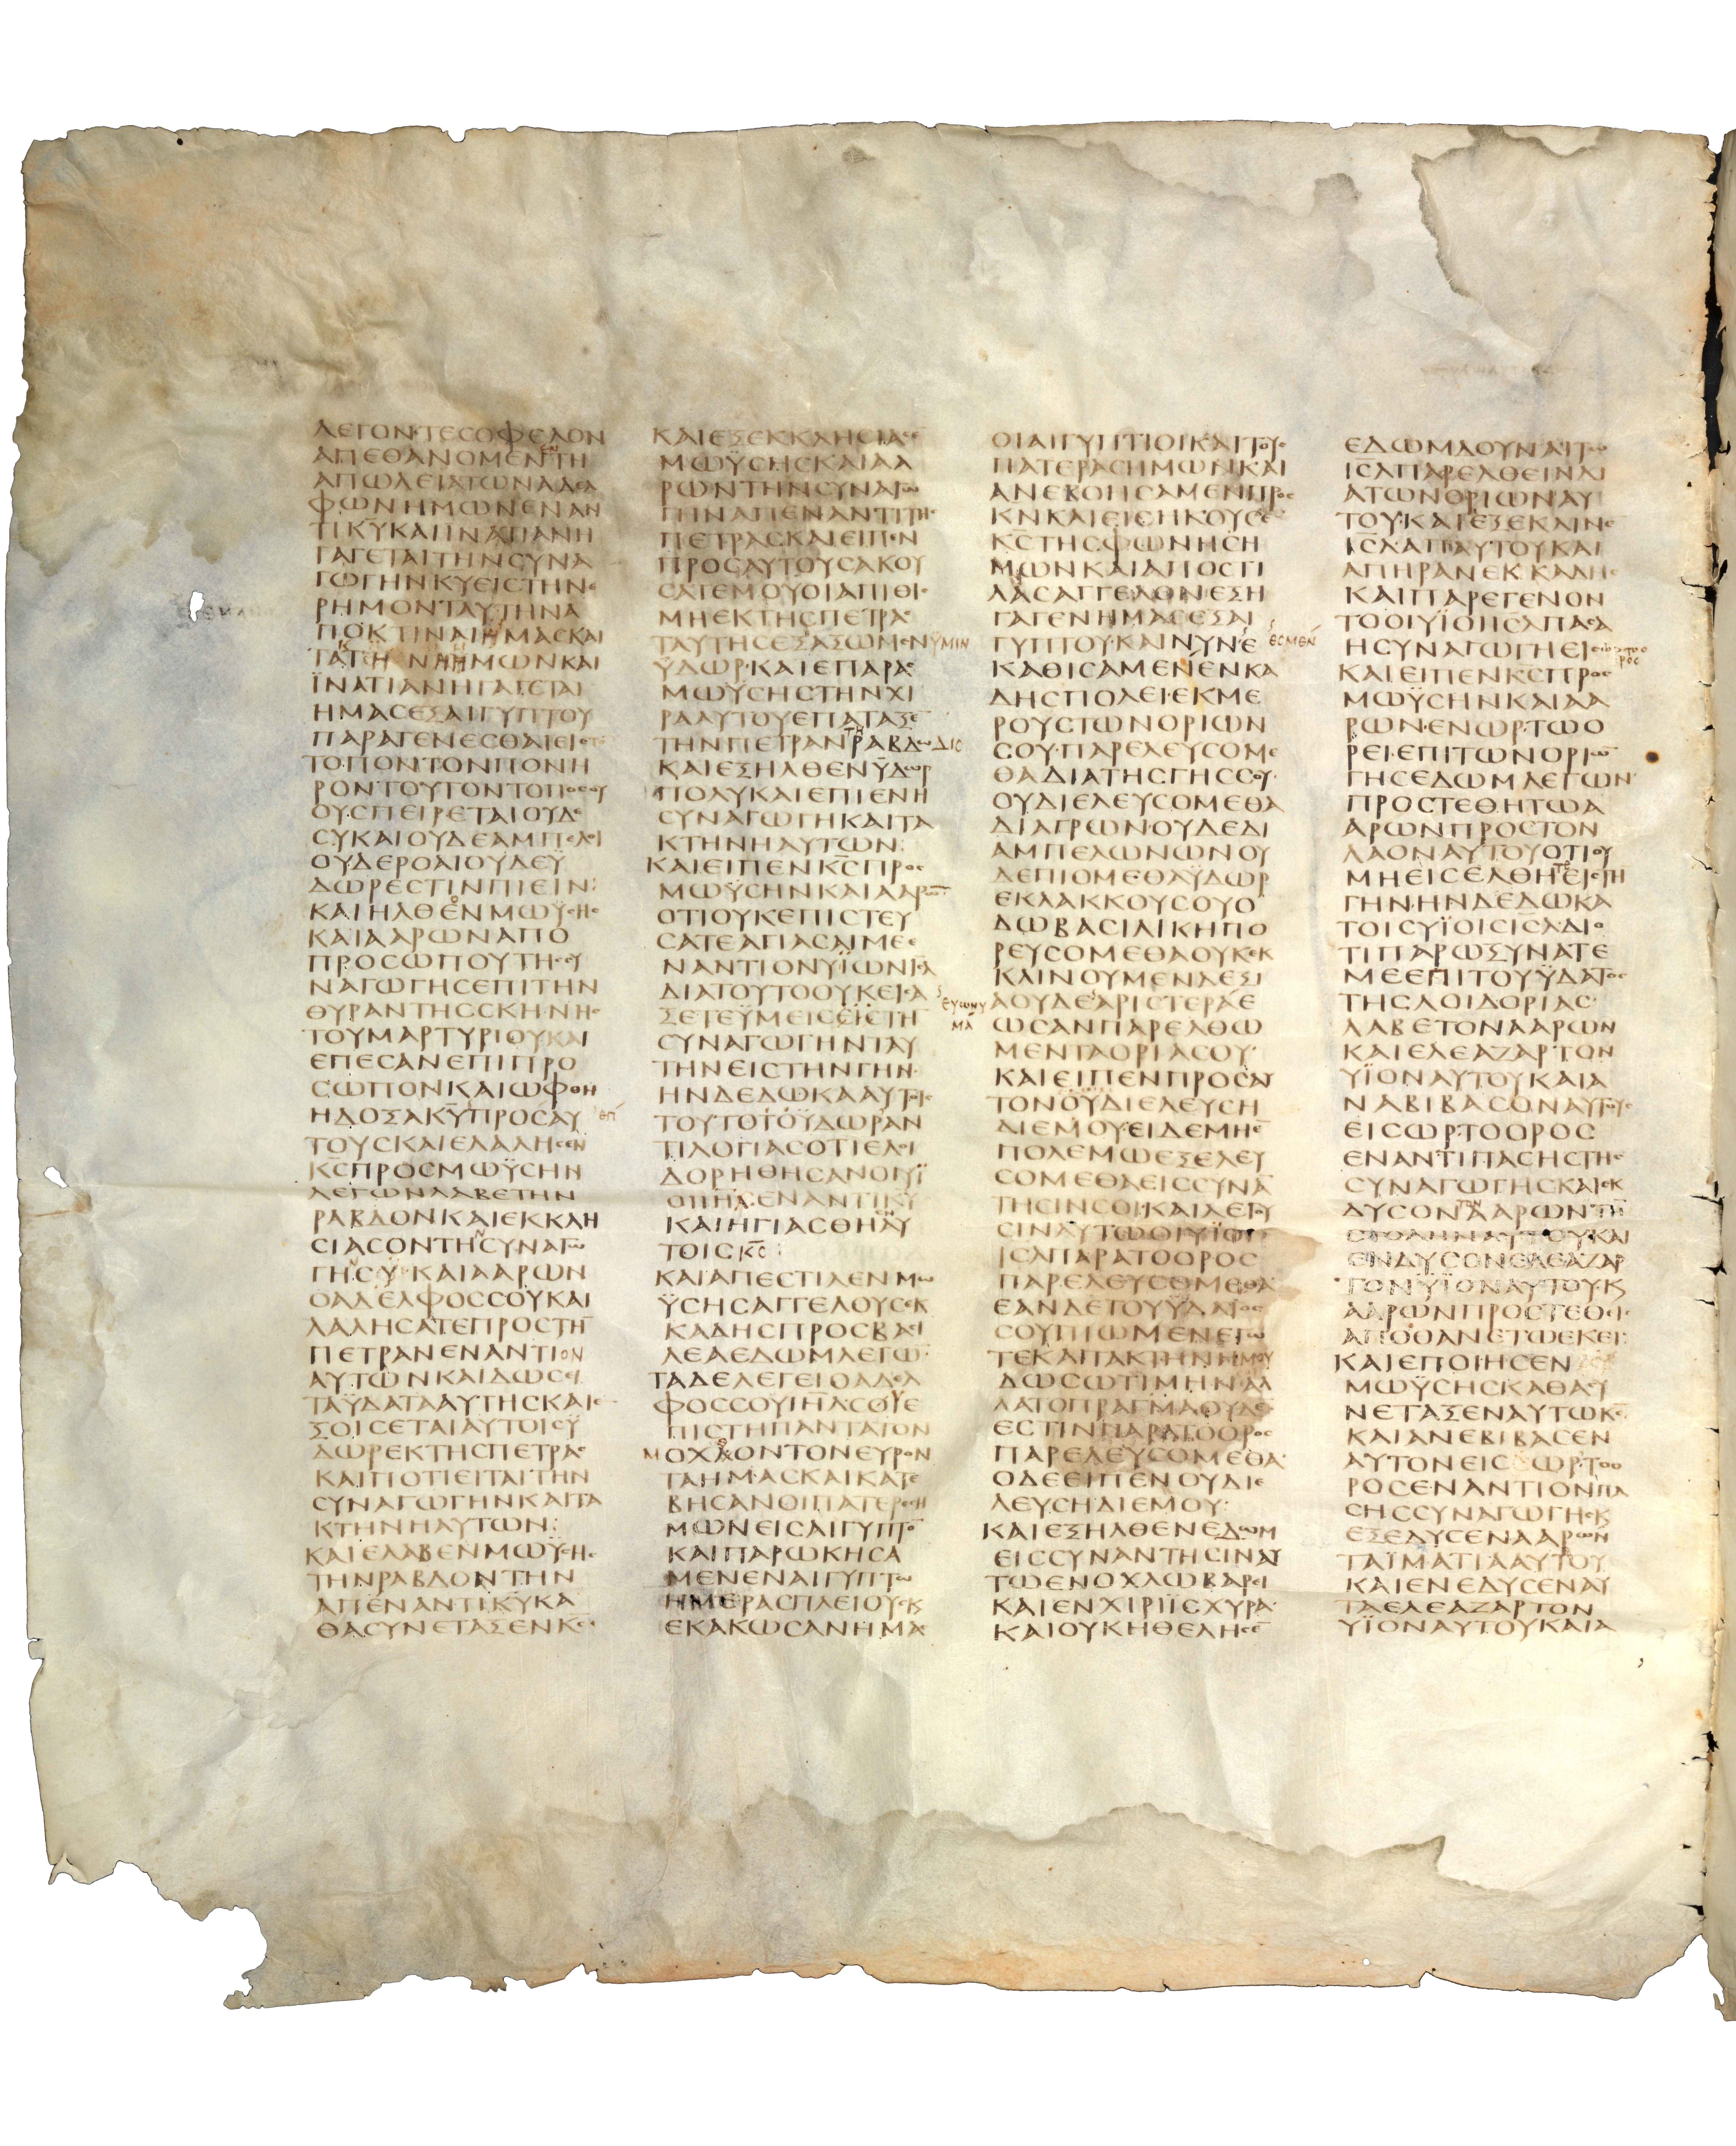 ΛΕΓΟΝΤΕϹΟΦΕΛΟΝ
ΑΠΕΘΑΝΟΜΕΝΤΗ
ΑΠΩΛΕΙΑΤΩΝΑΔΕΛ
ΦΩΝΗΜΩΝΕΝΑΝ
ΤΙΚΥΚΑΙΙΝΑΤΙΑΝΗ
ΓΑΓΕΤΑΙΤΗΝϹΥΝΑ
ΓΩΓΗΝΚΥΕΙϹΤΗΝΕ
ΡΗΜΟΝΤΑΥΤΗΝΑ
ΠΟΚΤΙΝΑΙΗΜΑϹΚΑΙ
ΤΑΚΤΗΝΗΗΜΩΝΚΑΙ
ΪΝΑΤΙΑΝΗΓΑΓΕΤΑΙ
ΗΜΑϹΕΞΑΙΓΥΠΤΟΥ
ΠΑΡΑΓΕΝΕϹΘΑΙΕΙϹ
ΤΟΠΟΝΤΟΝΠΟΝΗ
ΡΟΝΤΟΥΤΟΝΤΟΠΟϹΟΥ
ΟΥϹΠΕΙΡΕΤΑΙΟΥΔΕ
ϹΥΚΑΙΟΥΔΕΑΜΠΕΛΟΙ
ΟΥΔΕΡΟΑΙΟΥΔΕΥ
ΔΩΡΕϹΤΙΝΠΙΕΙΝ:
ΚΑΙΗΛΘΕΝΜΩΥϹΗϹ
ΚΑΙΑΑΡΩΝΑΠΟ
ΠΡΟϹΩΠΟΥΤΗϹϹΥ
ΝΑΓΩΓΗϹΕΠΙΤΗΝ
ΘΥΡΑΝΤΗϹϹΚΗΝΗϹ
ΤΟΥΜΑΡΤΥΡΙΟΥΚΑΙ
ΕΠΕϹΑΝΕΠΙΠΡΟ
ϹΩΠΟΝΚΑΙΩΦΘΗ
ΗΔΟΞΑΚΥΠΡΟϹΑΥ ΕΠ
ΤΟΥϹΚΑΙΕΛΑΛΗϹΕΝ
ΚϹΠΡΟϹΜΩΫϹΗΝ
ΛΕΓΩΝΛΑΒΕΤΗΝ
ΡΑΒΔΟΝΚΑΙΕΚΚΛΗ
ϹΙΑϹΟΝΤΗΝϹΥΝΑΓΩ
ΓΗΝϹΥΚΑΙΑΑΡΩΝ
ΟΑΔΕΛΦΟϹϹΟΥΚΑΙ
ΛΑΛΗϹΑΤΕΠΡΟϹΤΗ
ΠΕΤΡΑΝΕΝΑΝΤΙΟΝ
ΑΥΤΩΝΚΑΙΔΩϹΕΙ
ΤΑΫΔΑΤΑΑΥΤΗϹΚΑΙΕ
ΞΟΙϹΕΤΑΙΑΥΤΟΙϹΫ
ΔΩΡΕΚΤΗϹΠΕΤΡΑϹ
ΚΑΙΠΟΤΙΕΙΤΑΙΤΗΝ
ϹΥΝΑΓΩΓΗΝΚΑΙΤΑ
ΚΤΗΝΗΑΥΤΩΝ:
ΚΑΙΕΛΑΒΕΝΜΩΫϹΗϹ
ΤΗΝΡΑΒΔΟΝΤΗΝ
ΑΠΕΝΑΝΤΙΚΥΚΑ
ΘΑϹΥΝΕΤΑΞΕΝΚϹ
ΚΑΙΕΞΕΚΚΛΗϹΙΑϹΕ
ΜΩΫϹΗϹΚΑΙΑΑ
ΡΩΝΤΗΝϹΥΝΑΓΩ
ΓΗΝΑΠΕΝΑΝΤΙΤΗϹ
ΠΕΤΡΑϹΚΑΙΕΙΠΕΝ
ΠΡΟϹΑΥΤΟΥϹΑΚΟΥ
ϹΑΤΕΜΟΥΟΙΑΠΙΘΙϹ
ΜΗΕΚΤΗϹΠΕΤΡΑϹ
ΤΑΥΤΗϹΕΞΑΞΩΜΕΝΥΜΙΝ
ΫΔΩΡ·ΚΑΙΕΠΑΡΑϹ
ΜΩΫϹΗϹΤΗΝΧΙ
ΡΑΑΥΤΟΥΕΠΑΤΑΞΕ
ΤΗΝΠΕΤΡΑΝΤΗΡΑΒΔΩΔΙϹ
ΚΑΙΕΞΗΛΘΕΝΫΔΩΡ
ΠΟΛΥΚΑΙΕΠΙΕΝΗ
ϹΥΝΑΓΩΓΗΚΑΙΤΑ
ΚΤΗΝΗΑΥΤΩΝ:
ΚΑΙΕΙΠΕΝΚϹΠΡΟϹ
ΜΩΫϹΗΝΚΑΙΑΑΡΩ
ΟΤΙΟΥΚΕΠΙϹΤΕΥ
ϹΑΤΕΑΓΙΑϹΑΙΜΕΕ
ΝΑΝΤΙΟΝΥΪΩΝΙϹΛ
ΔΙΑΤΟΥΤΟΟΥΚΕΙϹΑ
ΞΕΤΕΫΜΕΙϹΕΙϹΤΗ
ϹΥΝΑΓΩΓΗΝΤΑΥ
ΤΗΝΕΙϹΤΗΝΓΗΝ
ΗΝΔΕΔΩΚΑΑΥΤΟΙϹ
ΤΟΥΤΟΤΟΫΔΩΡΑΝ
ΤΙΛΟΓΙΑϹΟΤΙΕΛΟΙ
ΔΟΡΗΘΗϹΑΝΟΙΥΪ
ΟΙΙΗΛΕΝΑΝΤΙΚΥ
ΚΑΙΗΓΙΑϹΘΗΑΥ
ΤΟΙϹΚϹ:
ΚΑΙΑΠΕϹΤΙΛΕΝΜΩ
ΫϹΗϹΑΓΓΕΛΟΥϹΕΚ
ΚΑΔΗϹΠΡΟϹΒΑϹΙ
ΛΕΑΕΔΩΜΛΕΓΩ
ΤΑΔΕΛΕΓΕΙΟΑΔΕΛ
ΦΟϹϹΟΥΙΗΛϹΟΙΕ
ΠΙϹΤΗΠΑΝΤΑΤΟΝ
ΜΟΧΘΟΝΤΟΝΕΥΡΟΝ
ΤΑΗΜΑϹΚΑΙΚΑΤΕ
ΒΗϹΑΝΟΙΠΑΤΕΡΕϹΗ
ΜΩΝΕΙϹΑΙΓΥΠΤΟ
ΚΑΙΠΑΡΩΚΗϹΑ
ΜΕΝΕΝΑΙΓΥΠΤΩ
ΗΜΕΡΑϹΠΛΕΙΟΥϹΚ
ΕΚΑΚΩϹΑΝΗΜΑϹ
ΟΙΑΙΓΥΠΤΙΟΙΚΑΙΤΟΥϹ
ΠΑΤΕΡΑϹΗΜΩΝΚΑΙ
ΑΝΕΒΟΗϹΑΜΕΝΠΡΟϹ
ΚΝΚΑΙΕΙϹΗΚΟΥϹΕ
ΚϹΤΗϹΦΩΝΗϹΗ
ΜΩΝΚΑΙΑΠΟϹΤΙ
ΛΑϹΑΓΓΕΛΟΝΕΞΗ
ΓΑΓΕΝΗΜΑϹΕΞΑΙ
ΓΥΠΤΟΥ·ΚΑΙΝΥΝΕ ΕϹΜΕΝ
ΚΑΘΙϹΑΜΕΝΕΝΚΑ
ΔΗϹΠΟΛΕΙ·ΕΚΜΕ
ΡΟΥϹΤΩΝΟΡΙΩΝ
ϹΟΥ·ΠΑΡΕΛΕΥϹΟΜΕ
ΘΑΔΙΑΤΗϹΓΗϹϹΟΥ·
ΟΥΔΙΕΛΕΥϹΟΜΕΘΑ
ΔΙΑΓΡΩΝ·ΟΥΔΕΔΙ
ΑΜΠΕΛΩΝΩΝΟΥ
ΔΕΠΙΟΜΕΘΑΫΔΩΡ
ΕΚΛΑΚΚΟΥϹΟΥΟ
ΔΩΒΑϹΙΛΙΚΗΠΟ
ΡΕΥϹΟΜΕΘΑΟΥΚΕΚ
ΚΛΙΝΟΥΜΕΝΔΕΞΙ
ΕΥΩΝΥΜΑ ΑΟΥΔΕΑΡΙϹΤΕΡΑΕ
ΩϹΑΝΠΑΡΕΛΘΩ
ΜΕΝΤΑΟΡΙΑϹΟΥ·
ΚΑΙΕΙΠΕΝΠΡΟϹΑΥ
ΤΟΝΟΫΔΙΕΛΕΥϹΗ
ΔΙΕΜΟΥ·ΕΙΔΕΜΗΕ
ΠΟΛΕΜΩΕΞΕΛΕΥ
ϹΟΜΕΘΑΕΙϹϹΥΝΑ
ΤΗϹΙΝϹΟΙ·ΚΑΙΛΕΓΟΥ
ϹΙΝΑΥΤΩΟΙΥΪΟΙ
ΙϹΛΠΑΡΑΤΟΟΡΟϹ
ΠΑΡΕΛΕΥϹΟΜΕΘΑ
ΕΑΝΔΕΤΟΥΫΔΑΤΟϹ
ϹΟΥΠΙΩΜΕΝΕΓΩ
ΤΕΚΑΙΤΑΚΤΗΝΗΜΟΥ
ΔΩϹΩΤΙΜΗΝΑΛ
ΛΑΤΟΠΡΑΓΜΑΟΥΔΕ
ΕϹΤΙΝΠΑΡΑΤΟΟΡΟϹ
ΠΑΡΕΛΕΥϹΟΜΕΘΑ·
ΟΔΕΕΙΠΕΝΟΥΔΙΕ
ΛΕΥϹΗΔΙΕΜΟΥ:
ΚΑΙΕΞΗΛΘΕΝΕΔΩΜ
ΕΙϹϹΥΝΑΝΤΗϹΙΝΑΥ
ΤΩΕΝΟΧΛΩΒΑΡΕΙ
ΚΑΙΕΝΧΙΡΙΪϹΧΥΡΑ·
ΚΑΙΟΥΚΗΘΕΛΗϹΕ
ΕΔΩΜΔΟΥΝΑΙΤΩ
ΙϹΛΠΑΡΕΛΘΕΙΝΔΙ
ΑΤΩΝΟΡΙΩΝΑΥ
ΤΟΥ·ΚΑΙΕΞΕΚΛΙΝΕ
ΙϹΛΑΠΑΥΤΟΥΚΑΙ
ΑΠΗΡΑΝΕΚΚΑΔΗϹ
ΚΑΙΠΑΡΕΓΕΝΟΝ
ΤΟΟΙΥΪΟΙΙϹΛΠΑϹΑ
ΗϹΥΝΑΓΩΓΗΕΙϹΩΡΤΟΟΡΟϹ
ΚΑΙΕΙΠΕΝΚϹΠΡΟϹ
ΜΩΫϹΗΝΚΑΙΑΑ
ΡΩΝ·ΕΝΩΡ·ΤΩΟ
ΡΕΙ·ΕΠΙΤΩΝΟΡΙΩ
ΓΗϹΕΔΩΜΛΕΓΩΝ·
ΠΡΟϹΤΕΘΗΤΩΑ
ΑΡΩΝΠΡΟϹΤΟΝ
ΛΑΟΝΑΥΤΟΥΟΤΙΟΥ
ΜΗΕΙϹΕΛΘΗΤΕΕΙϹΤΗ
ΓΗΝ·ΗΝΔΕΔΩΚΑ
ΤΟΙϹΥΪΟΙϹΙϹΛ·ΔΙΟ
ΤΙΠΑΡΩΞΥΝΑΤΕ
ΜΕΕΠΙΤΟΥΫΔΑΤΟϹ
ΤΗϹΛΟΙΔΟΡΙΑϹ·
ΛΑΒΕΤΟΝΑΑΡΩΝ
ΚΑΙΕΛΕΑΖΑΡΤΟΝ
ΥΪΟΝΑΥΤΟΥΚΑΙΑ
ΝΑΒΙΒΑϹΟΝΑΥΤΟΥϹ
ΕΙϹΩΡ·ΤΟΟΡΟϹ
ΕΝΑΝΤΙΠΑϹΗϹΤΗϹ
ϹΥΝΑΓΩΓΗϹΚΑΙΕΚ
ΔΥϹΟΝΤΟΝΑΑΡΩΝΤΗ
ϹΤΟΛΗΝΑΥΤΟΥΚΑΙ
ΕΝΔΥϹΟΝΕΛΕΑΖΑΡ
ΤΟΝΥΪΟΝΑΥΤΟΥΚ
ΑΑΡΩΝΠΡΟϹΤΕΘΙϹ
ΑΠΟΘΑΝΕΤΩΕΚΕΙ·
ΚΑΙΕΠΟΙΗϹΕΝ
ΜΩΫϹΗϹΚΑΘΑϹΥ
ΝΕΤΑΞΕΝΑΥΤΩΚϹ
ΚΑΙΑΝΕΒΙΒΑϹΕΝ
ΑΥΤΟΝΕΙϹΩΡ·ΤΟΟ
ΡΟϹΕΝΑΝΤΙΟΝΠΑ
ϹΗϹϹΥΝΑΓΩΓΗϹΚ
ΕΞΕΔΥϹΕΝΑΑΡΩΝ
ΤΑΪΜΑΤΙΑΑΥΤΟΥ
ΚΑΙΕΝΕΔΥϹΕΝΑΥ
ΤΑΕΛΕΑΖΑΡΤΟΝ
ΥΪΟΝΑΥΤΟΥΚΑΙΑ